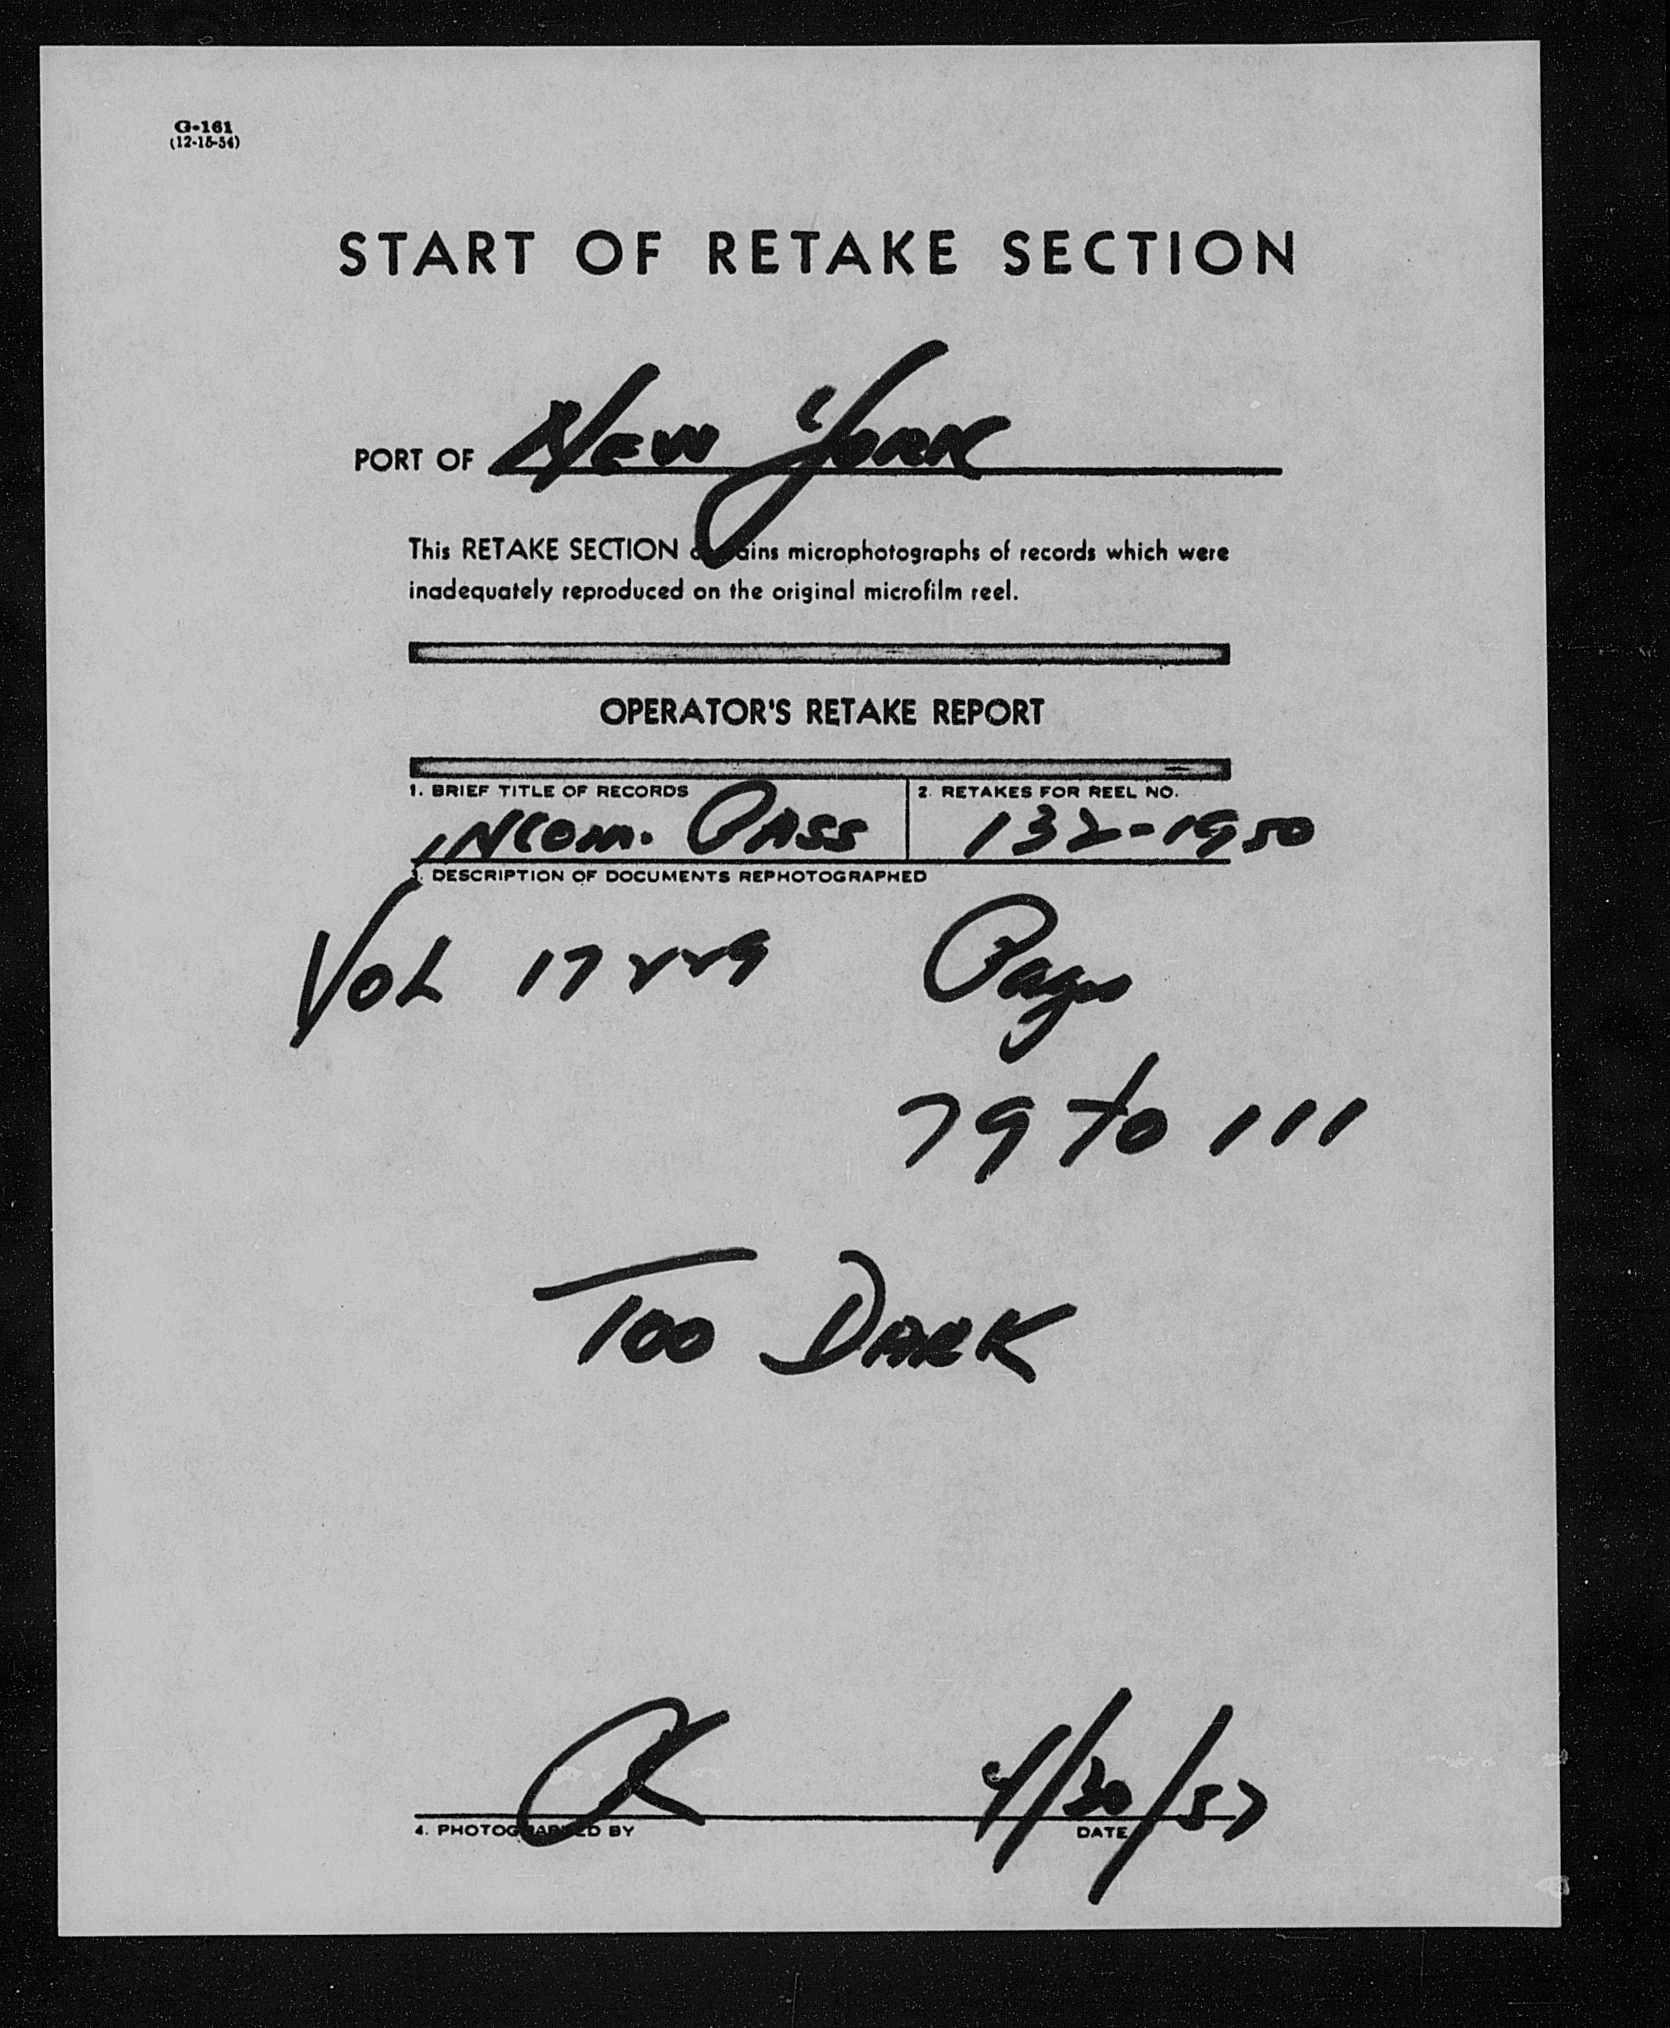 G-161
(12-15-54)
START OF RETAKE SECTION
PORT OF New York
This RETAKE SECTION contains microphotographs of records which were
inadequately reproduced on the original microfilm reel.
OPERATOR'S RETAKE REPORT
1. BRIEF TITLE OF RECORDS 2. RETAKES FOR REEL NO.
INCOM. PASS 132-1950
3. DESCRIPTION OF DOCUMENTS REPHOTOGRAPHED
VOL 17229 Pages
79 to 111
TOO DARK
4/30/57
4. PHOTOGRAPHED BY DATE